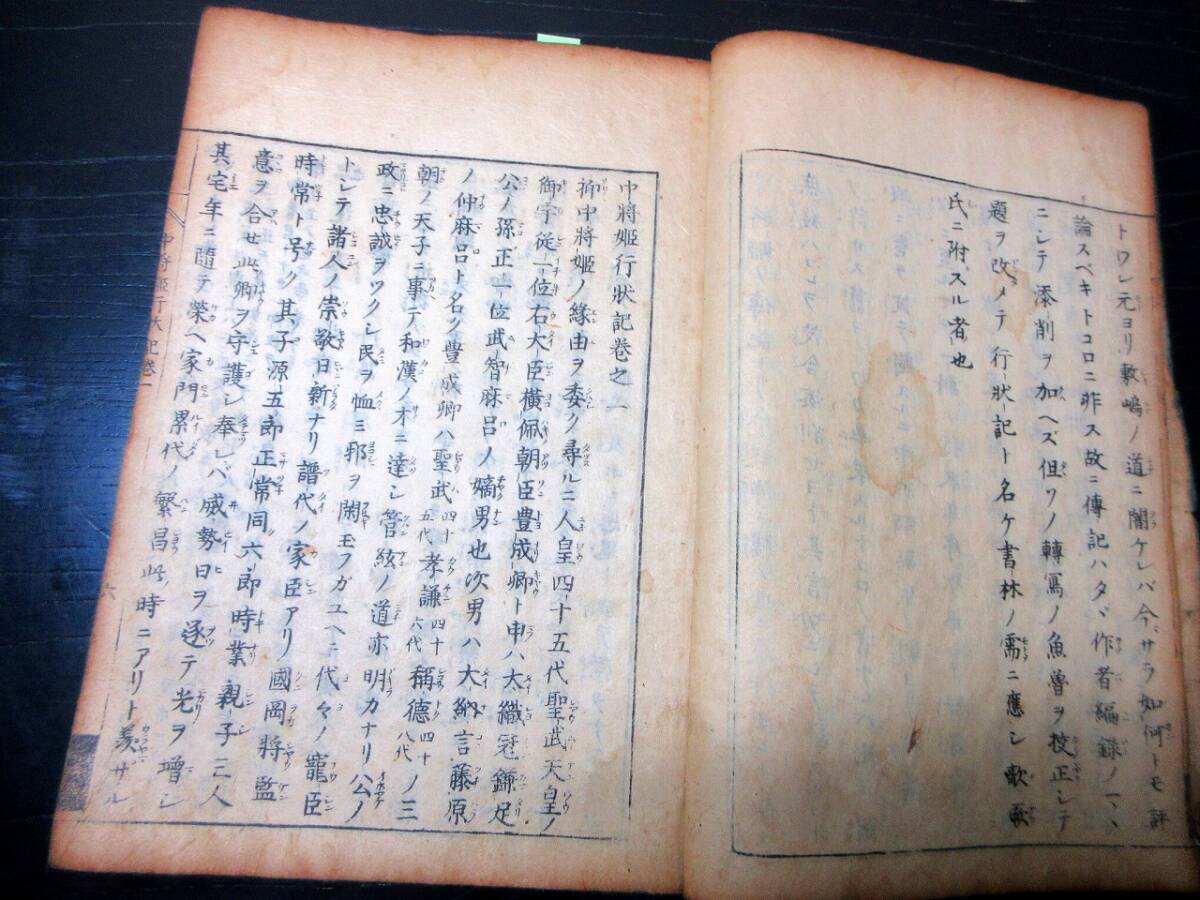 トワン元ヨリ敷嶋ノ道ニ闇ケレバ今サラ如何トモ評
論スベキトコロニ非ス故ニ傳記ハタヾ作者編録ノ一、
ニシテ添削ヲ加ヘズ但ワノ轉寫ノ魚魯ヲ挍正シテ
題ヲ改メテ行狀記ト名ケ書林ノ需ニ應シ歌
氏ニ附スル者也
中將姬行狀記卷之一
抑中將姬ノ緣由ヲ委ク尋ルニ人皇四十五代聖武天皇ノ
御宇從一位右大臣橫佩朝臣豊成卿ト申ハ大織冠鎌足
公ノ孫正一位武智麻呂ノ嫡男也次男ハ大納言藤原
ノ仲麻呂ト名ク豊成卿ハ聖武四十五代孝謙四十六代稱德四十八代ノ三
朝ノ天子ニ事テ和漢ノ才ニ達シ管絃ノ道亦明カナリ公ノ
政ニ忠誠ヲツクシ民ヲ恤ミ邪ヲ閑玉フガユヘニ代々ノ寵臣
トシテ諸人ノ崇敬日新ナリ譜代ノ家臣アリ國岡將監
時常ト号ク其子源五郎正常同六郎時業親子三人
意ヲ合セ此卿ヲ守護シ奉レバ威勢日ヲ逐テ光ヲ增シ
其宅年ニ隨テ榮ヘ家門累代ノ繁昌此ノ時ニアリト羨サル
中將姬行狀記卷一
六